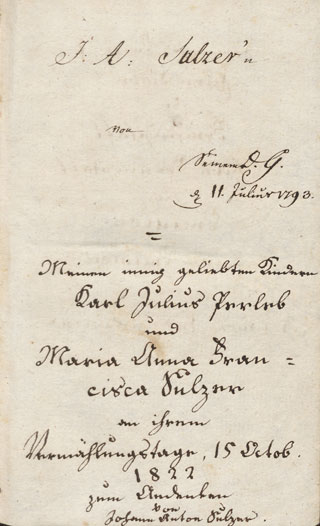 J: A: Sulzer'n
von
Seinem D. G.
d 11. Julius 1793.
=
Meinen innig geliebten Kindern
Karl Julius Perleb
und
Maria Anna Fran =
cisca Sulzer
an ihrem
Vermählungstage, 15 Octob.
1822
zum Andenken
von
Johann Anton Sulzer